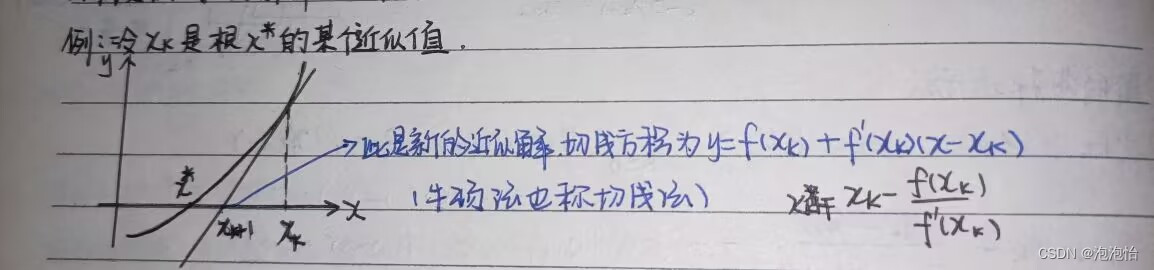 例:令 x_k 是根 x* 的某个近似值.
y
此是新的近似解 切线方程为 y=f(x_k)+f'(x_k)(x-x_k)
x*
(牛顿法也称切线法)
x_k - f(x_k)/f'(x_k)
x_{k+1} x_k x
CSDN @泡泡怡